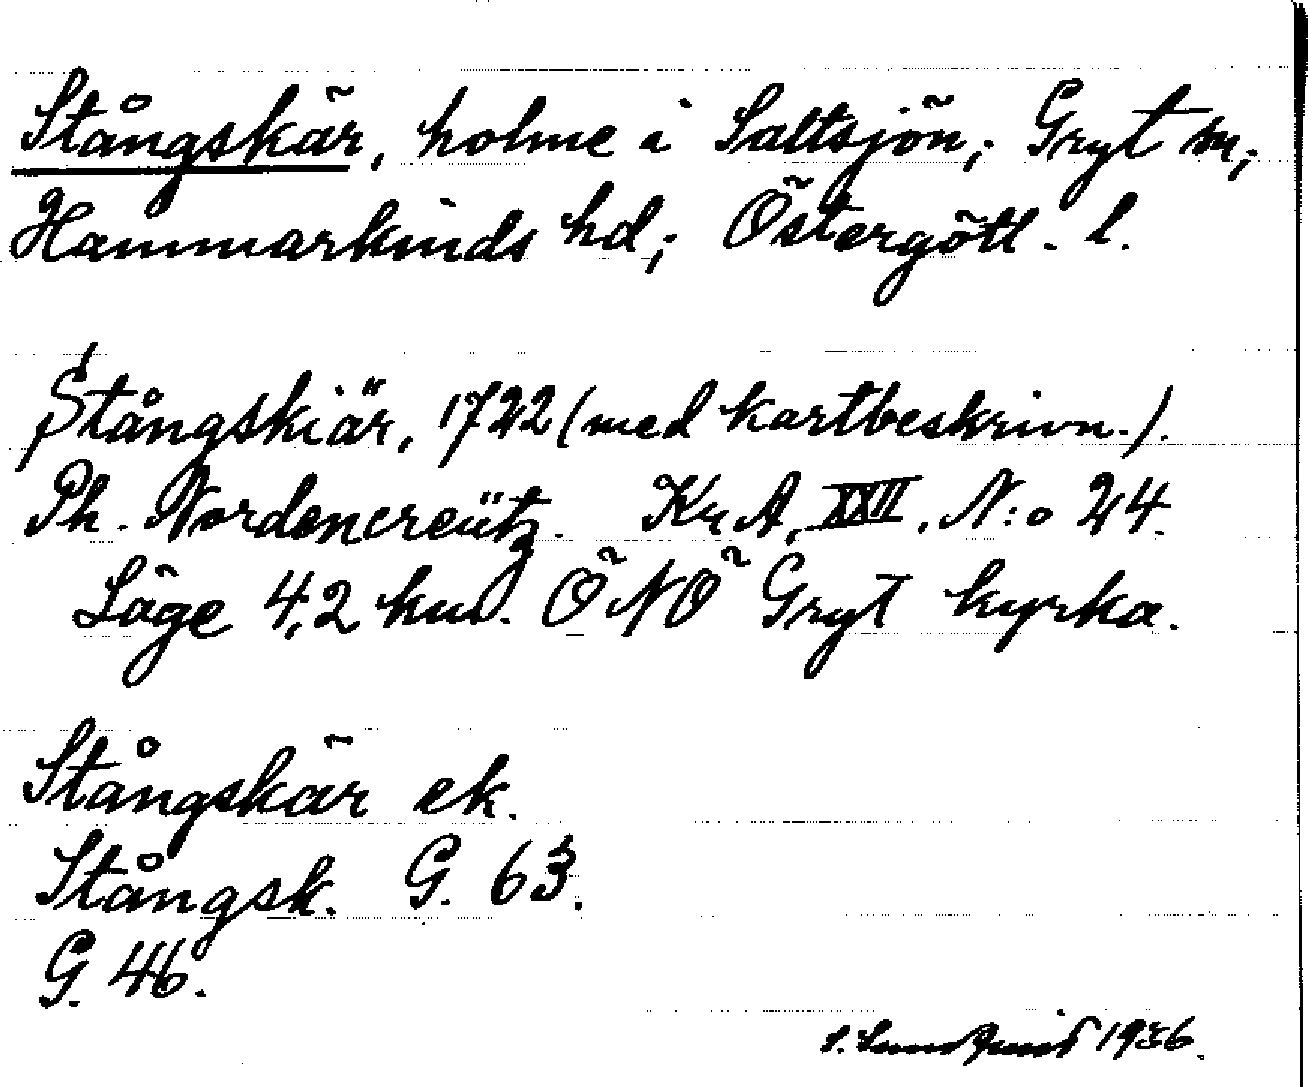 Stångskär, holme i Saltsjön; Gryt sn;
Hammarkinds hd; Östergötl. l.
Stångskiär, 1722 (med kartbeskrivn.).
Ph. Nordencreütz. Kr. A. XXII. N:o 24.
Läge 4,2 km. ÖNÖ Gryt kyrka.
Stångskär ek.
Stångsk. G. 63.
G. 46.
S. Lundqvist 1936.